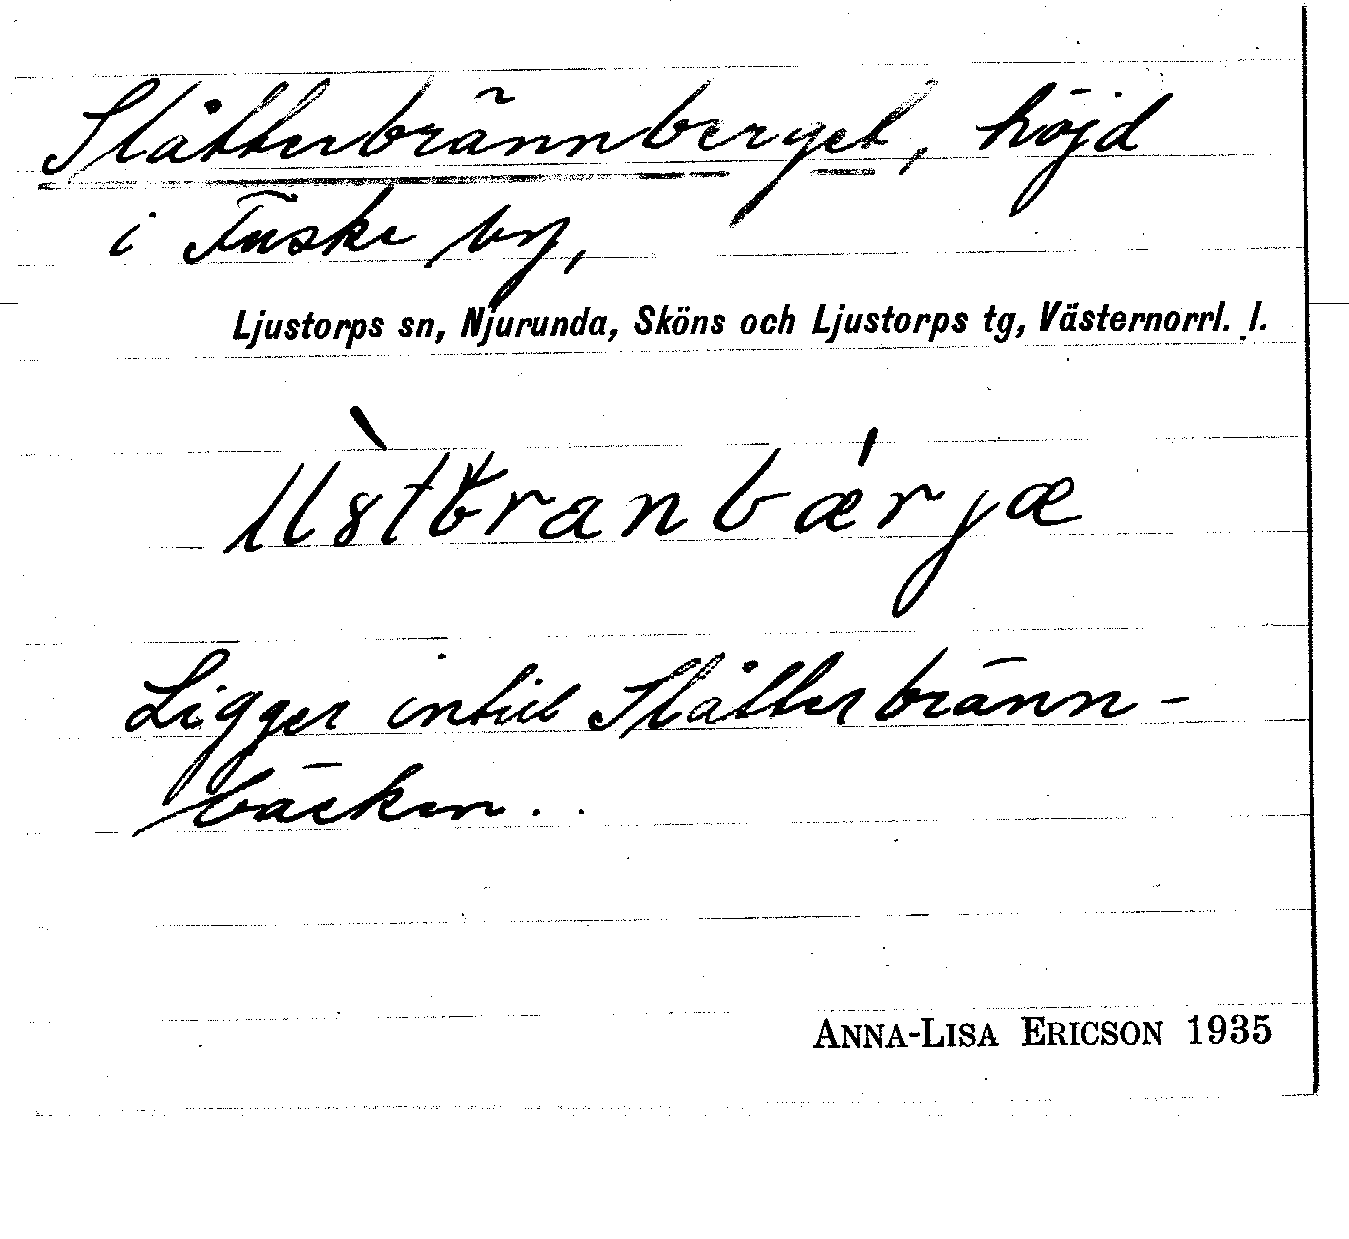 Slåtterbrännberget, höjd
i Fuske by,
Ljustorps sn, Njurunda, Sköns och Ljustorps tg, Västernorrl. l.
Ligger intill Slåtterbränn-
bäcken.
ANNA-LISA ERICSON 1935